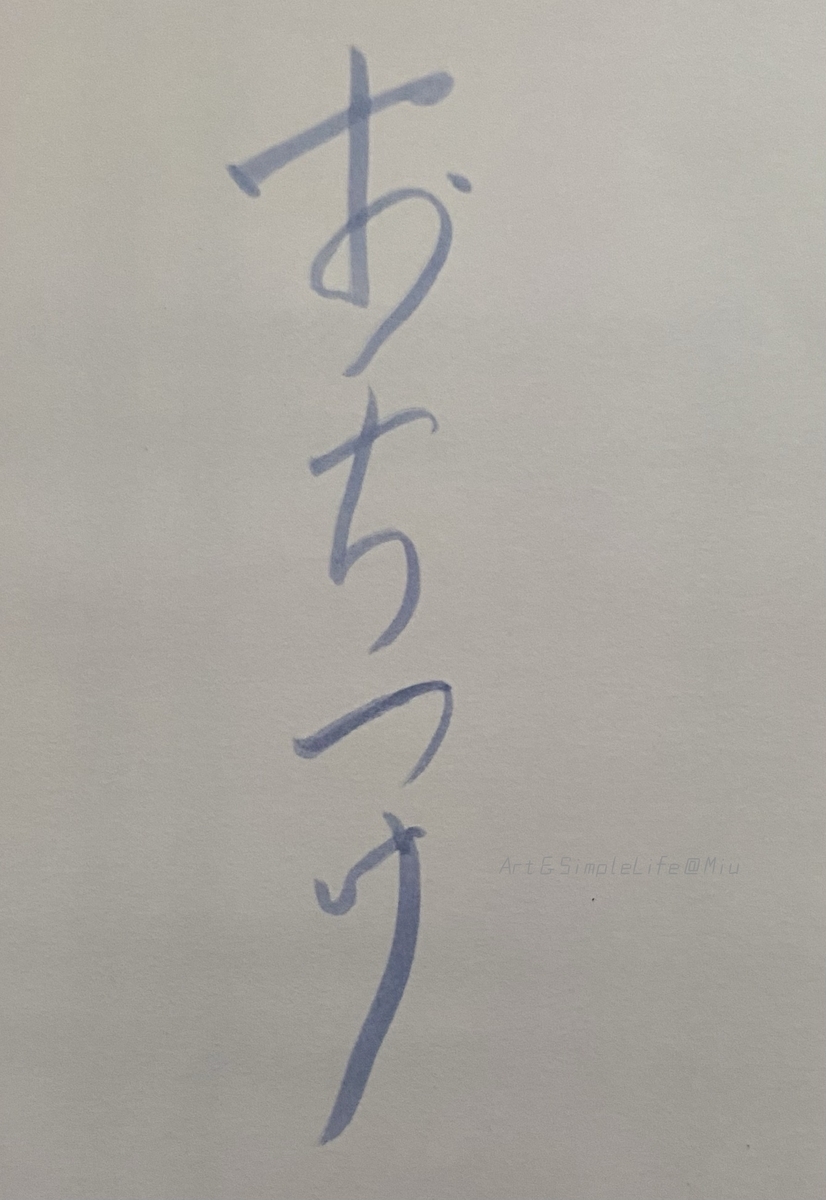 おちつけ
Art&SimpleLife@Miu